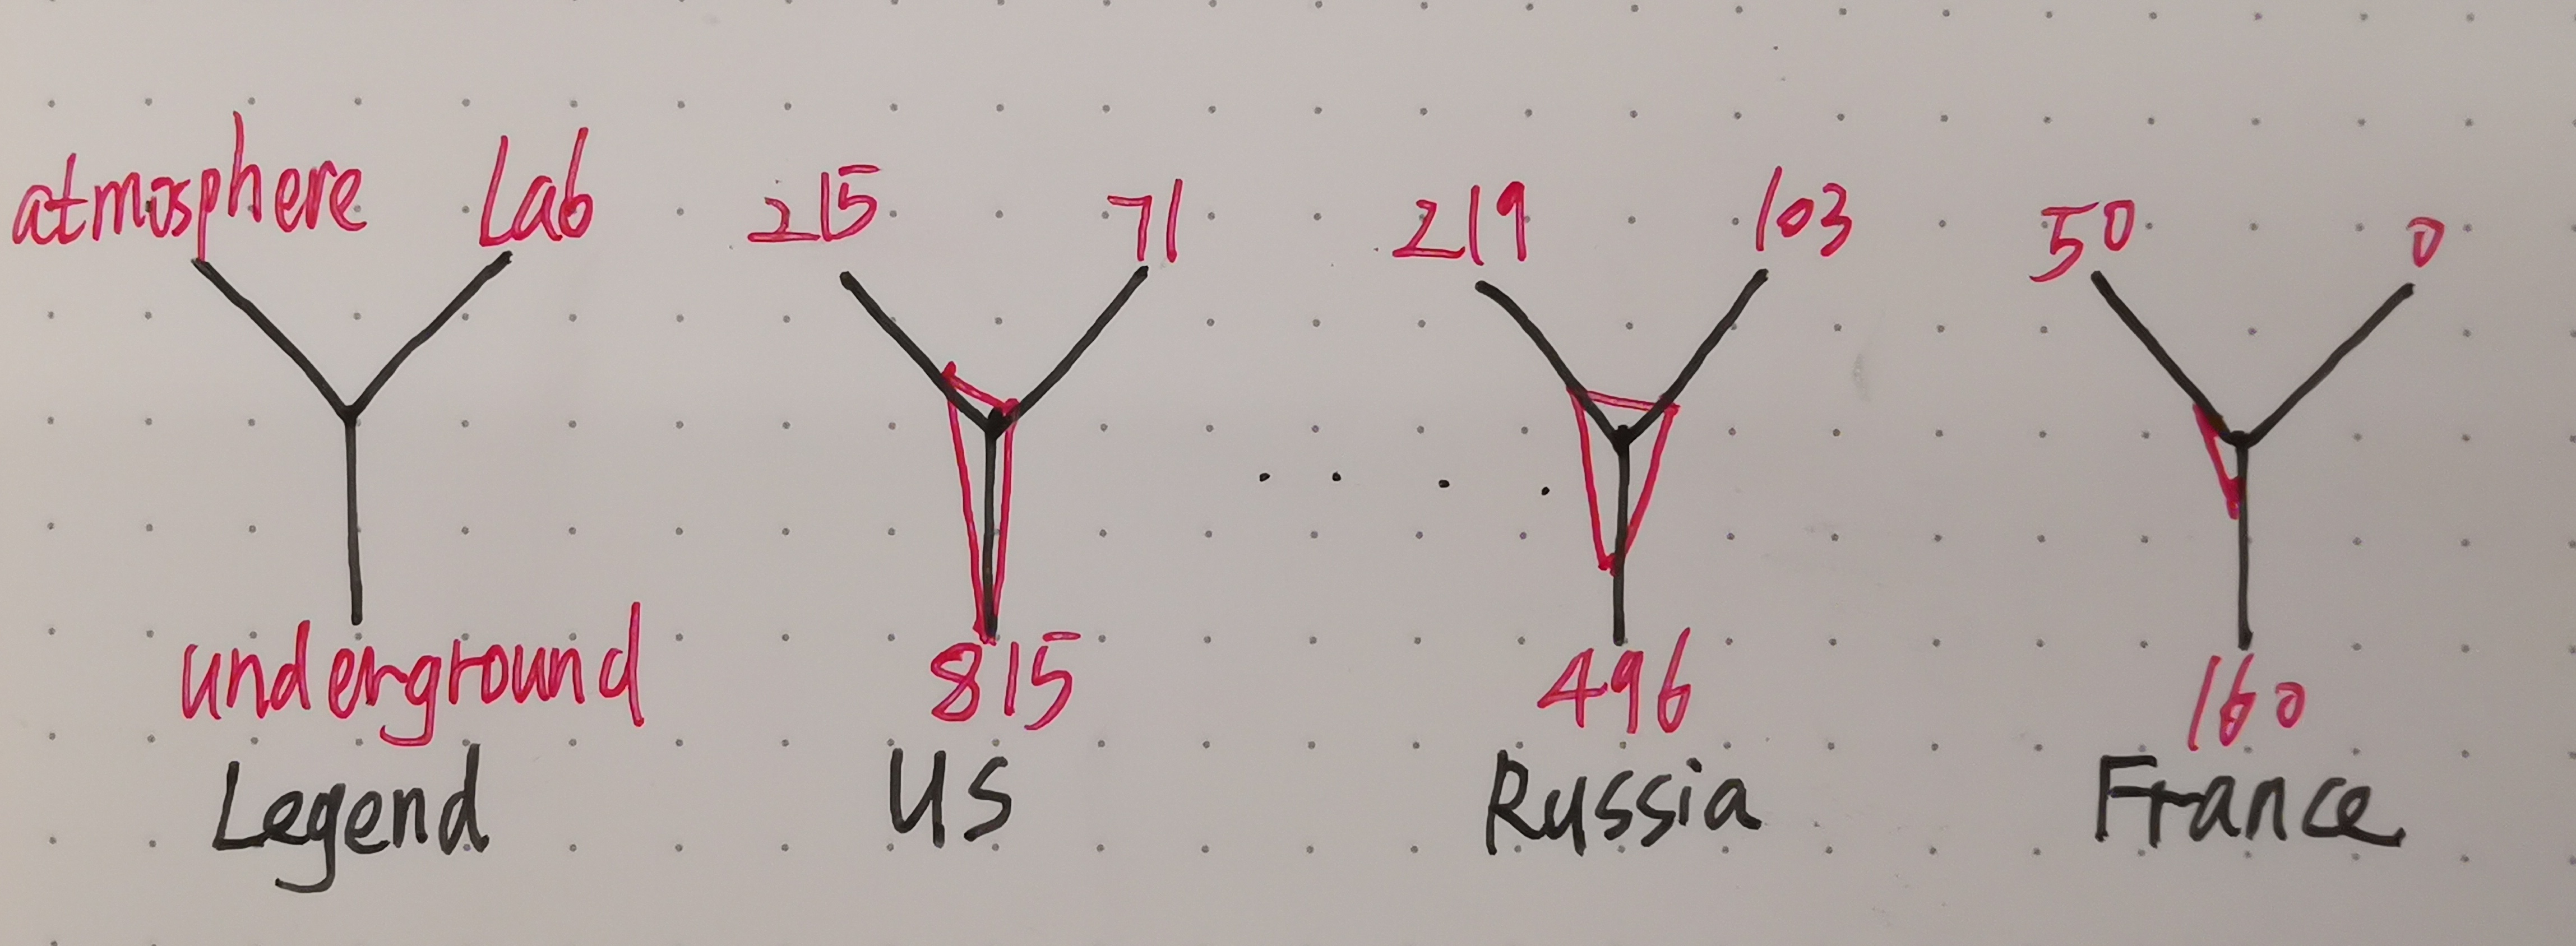 atmosphere Lab
underground
Legend
215 71
815
US
219 103
496
Russia
50 0
160
France